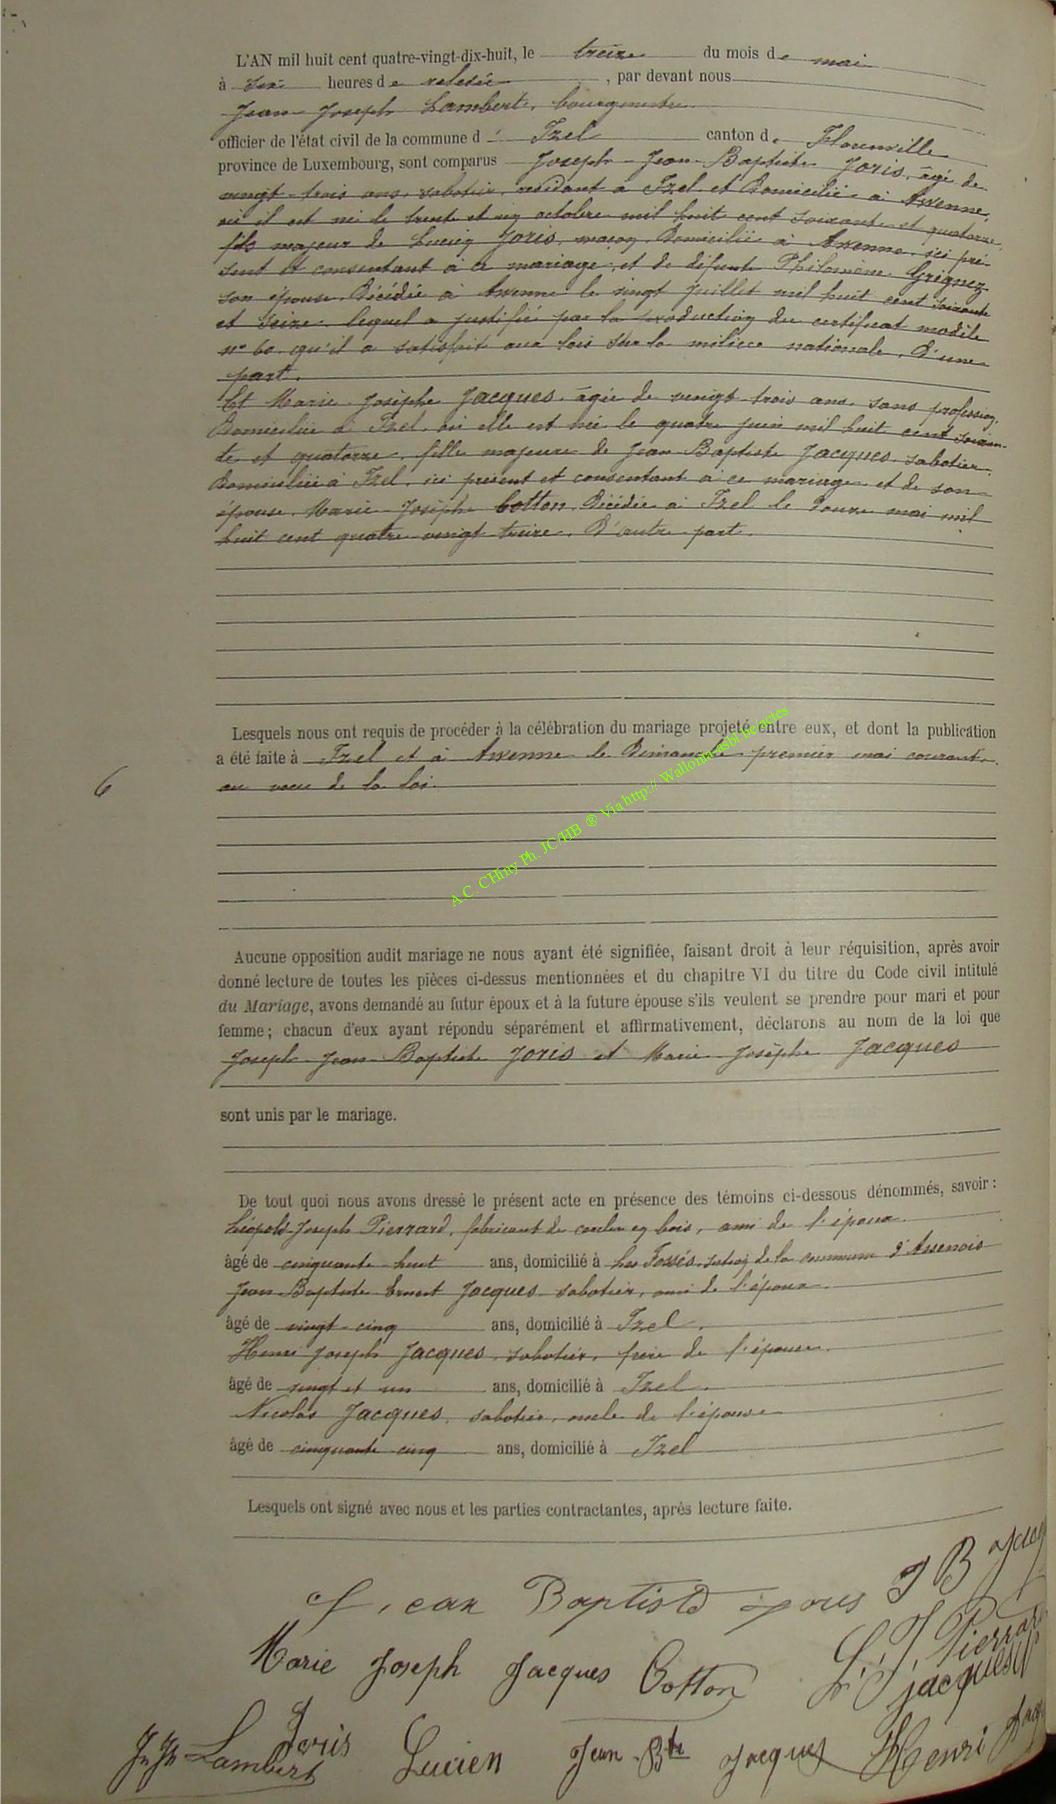 L'AN mil huit cent quatre-vingt-dix-huit, le treize du mois de mai
à six heures de relevée, par devant nous
Jean Joseph Lambert, bourgmestre
officier de l'état civil de la commune d' Izel canton de Florenville
province de Luxembourg, sont comparus Joseph Jean Baptiste Joris, âgé de
vingt-trois ans, sabotier, résidant à Izel et domicilié à Avenne,
où il est né le trente et un octobre mil huit cent soixante et quatorze,
fils majeur de Lucien Joris, maçon, domicilié à Avenne, ici pré-
sent et consentant à ce mariage, et de défunte Philomène Grignez
son épouse, décédée à Avenne le vingt juillet mil huit cent soixante
et seize. lequel a justifié par la production du certificat modèle
n° 60. qu'il a satisfait aux lois sur la milice nationale, d'une
part.
Et Marie Josèphe Jacques, âgée de vingt trois ans, sans profession,
domiciliée à Izel, où elle est née le quatre juin mil huit cent soixan-
te et quatorze, fille majeure de Jean Baptiste Jacques, sabotier,
domicilié à Izel, ici présent et consentant à ce mariage, et de son
épouse Marie Josèphe Cotton, décédée à Izel le douze mai mil
huit cent quatre vingt treize. D'autre part.
Lesquels nous ont requis de procéder à la célébration du mariage projeté entre eux, et dont la publication
a été faite à Izel et à Avenne le Dimanche premier mai courant,
au vœu de la loi.
6
A.C. CHiny Ph. JC/HB ® Via http:// Wallonia-asbl be/actes
Aucune opposition audit mariage ne nous ayant été signifiée, faisant droit à leur réquisition, après avoir
donné lecture de toutes les pièces ci-dessus mentionnées et du chapitre VI du titre du Code civil intitulé
du Mariage, avons demandé au futur époux et à la future épouse s'ils veulent se prendre pour mari et pour
femme; chacun d'eux ayant répondu séparément et affirmativement, déclarons au nom de la loi que
Joseph Jean Baptiste Joris et Marie Josèphe Jacques
sont unis par le mariage.
De tout quoi nous avons dressé le présent acte en présence des témoins ci-dessous dénommés, savoir:
Léopold-Joseph Pierrard, fabricant de en bois, ami de l'époux
âgé de cinquante huit ans, domicilié à Les Fossés, section de la commune d'Assenois
Jean Baptiste Ernest Jacques sabotier, ami de l'époux
âgé de vingt-cinq ans, domicilié à Izel.
Henri Joseph Jacques, sabotier, frère de l'épouse
âgé de vingt et un ans, domicilié à Izel.
Nicolas Jacques, sabotier, oncle de l'épouse
âgé de cinquante cinq ans, domicilié à Izel
Lesquels ont signé avec nous et les parties contractantes, après lecture faite.
J. Jean Baptiste Joris J B Jacq
Marie Joseph Jacques Cotton L. J. Pierrard
Jacques N
Jn Jh Lambert Joris Lucien Jean Bte Jacques Henri Jacq